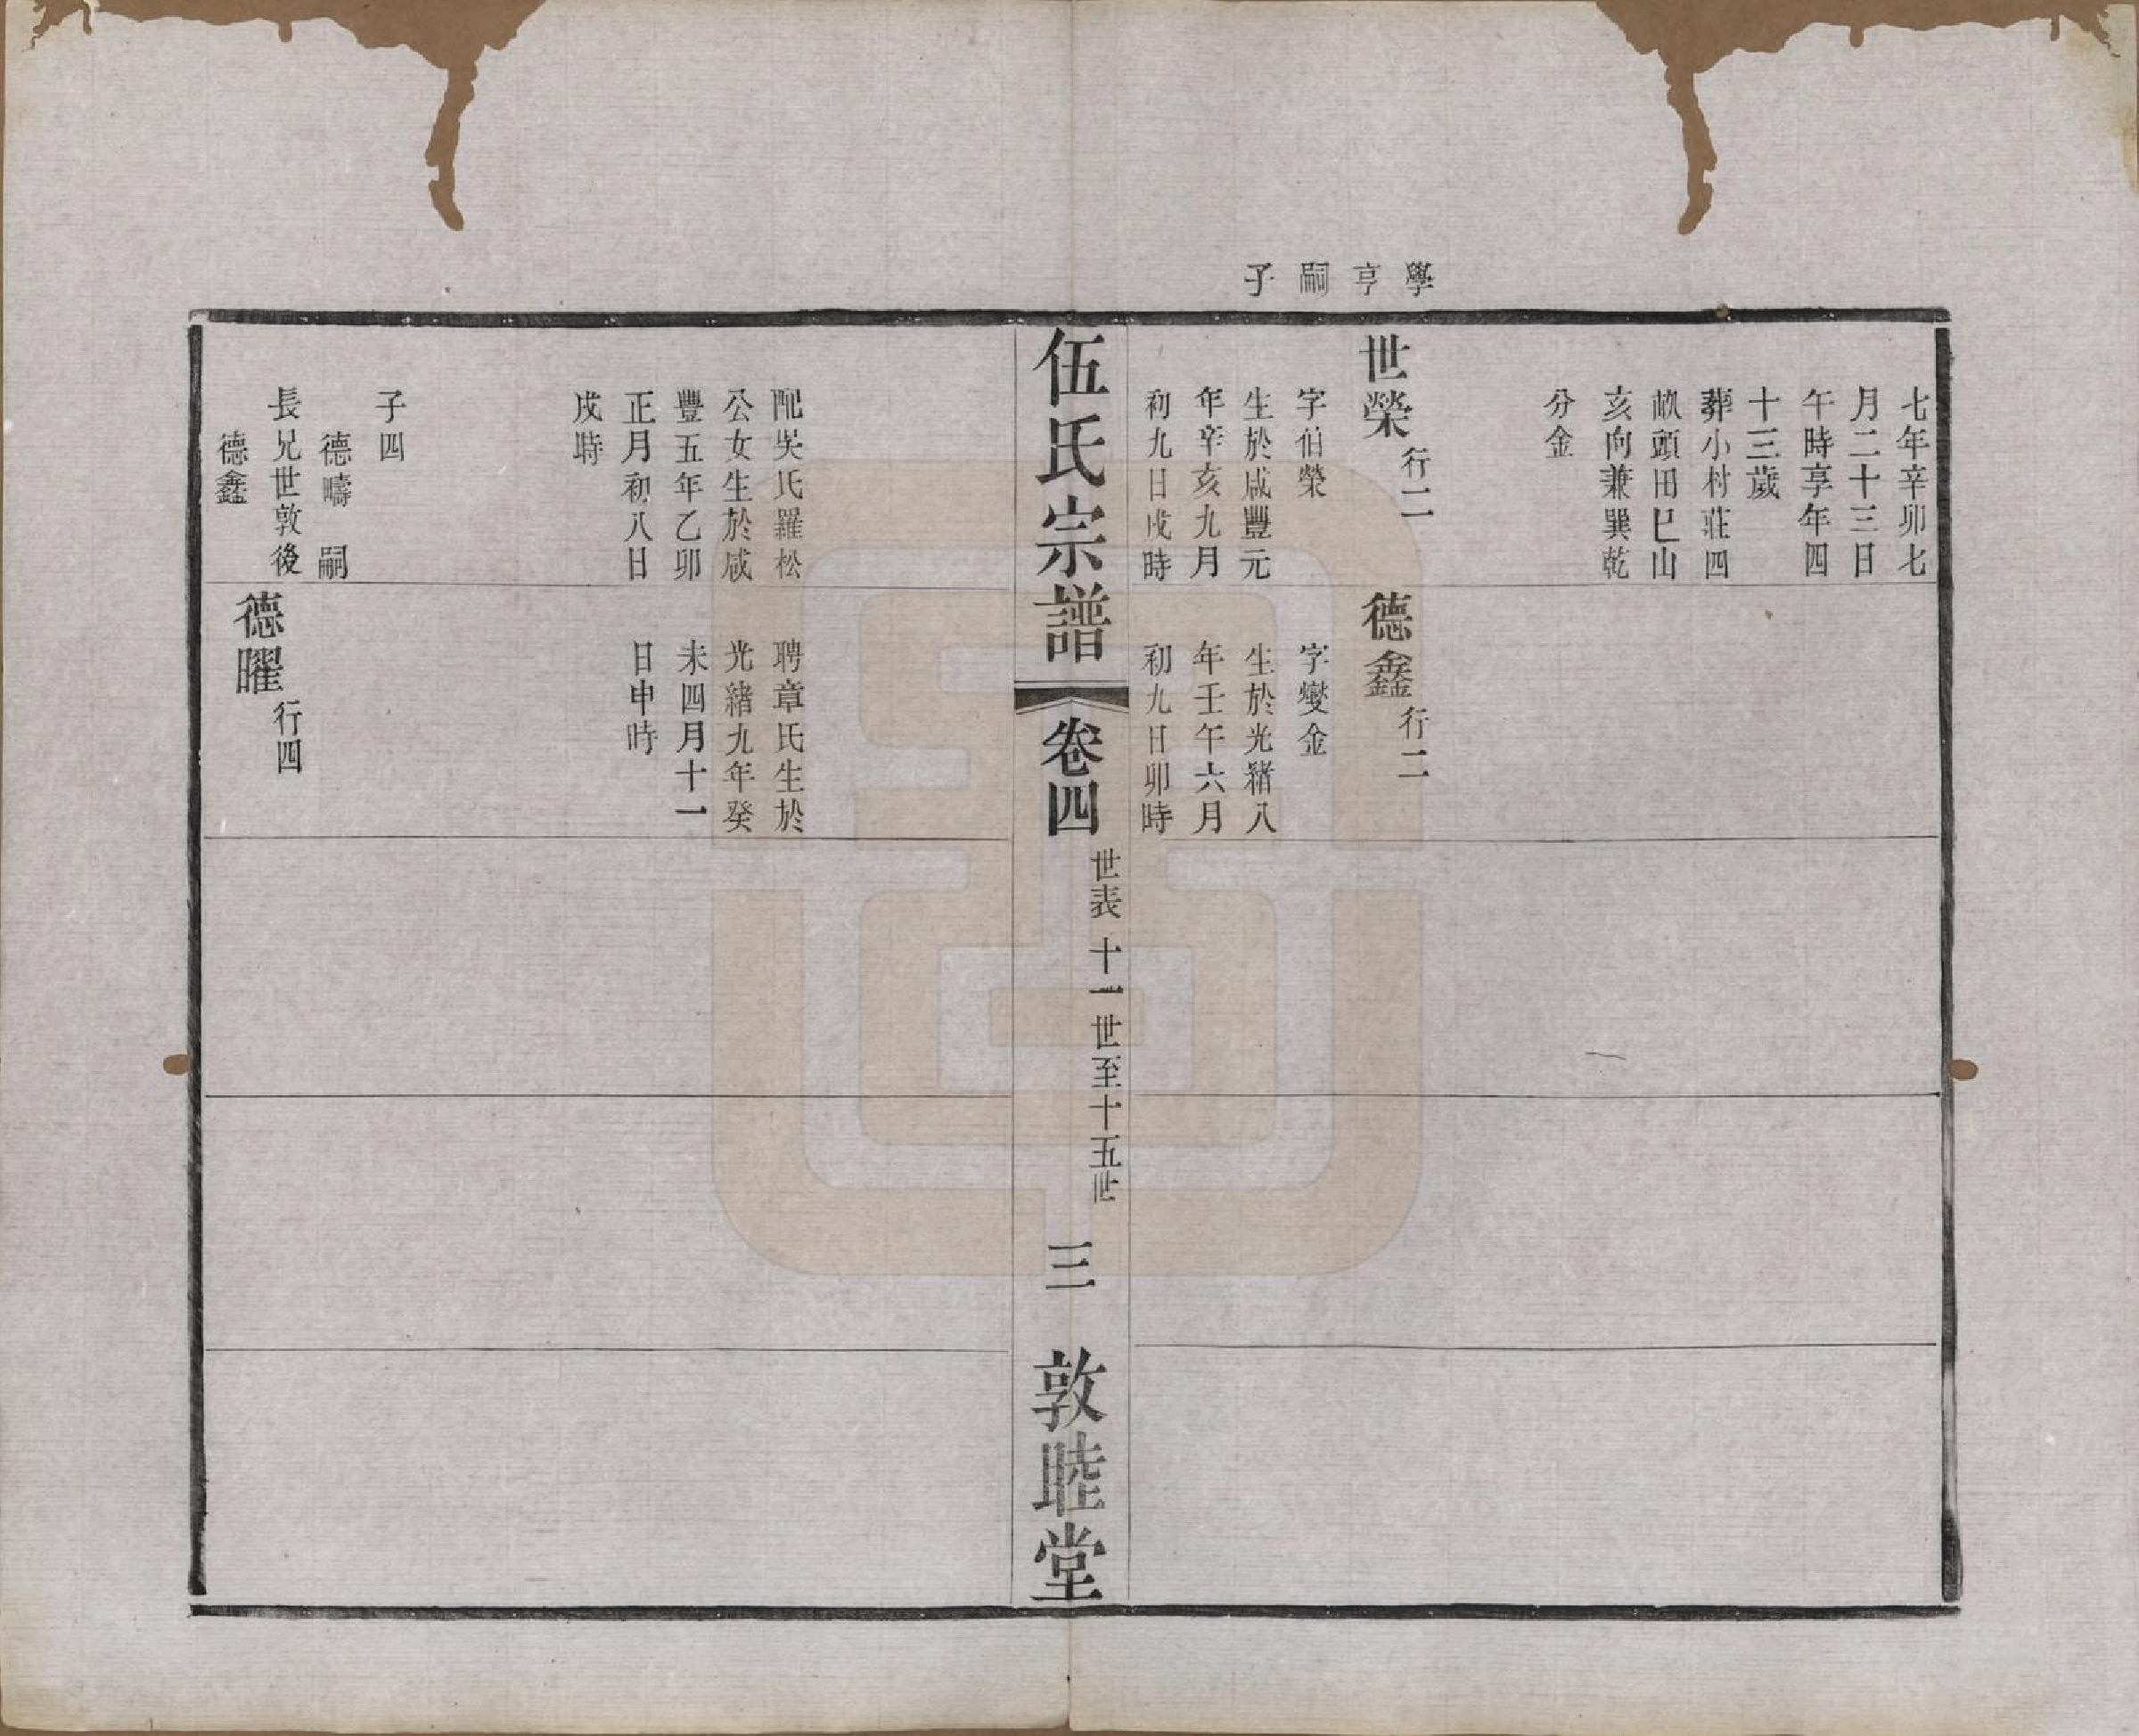 學亨嗣子
七年辛卯七
月二十三日
午時享年四
十三歲
葬小村莊四
畝頭田巳山
亥向兼巽乾
分金
世榮行二
字伯榮
生於咸豐元
年辛亥九月
初九日戌時
德鑫行二
字燮金
生於光緒八
年壬午六月
初九日卯時
伍氏宗譜
卷四
世表 十一世至十五世
三
敦睦堂
配吳氏羅松
公女生於咸
豐五年乙卯
正月初八日
戌時
子四
德疇 嗣
長兄世敦後
德鑫
聘章氏生於
光緒九年癸
未四月十一
日申時
德曜行四